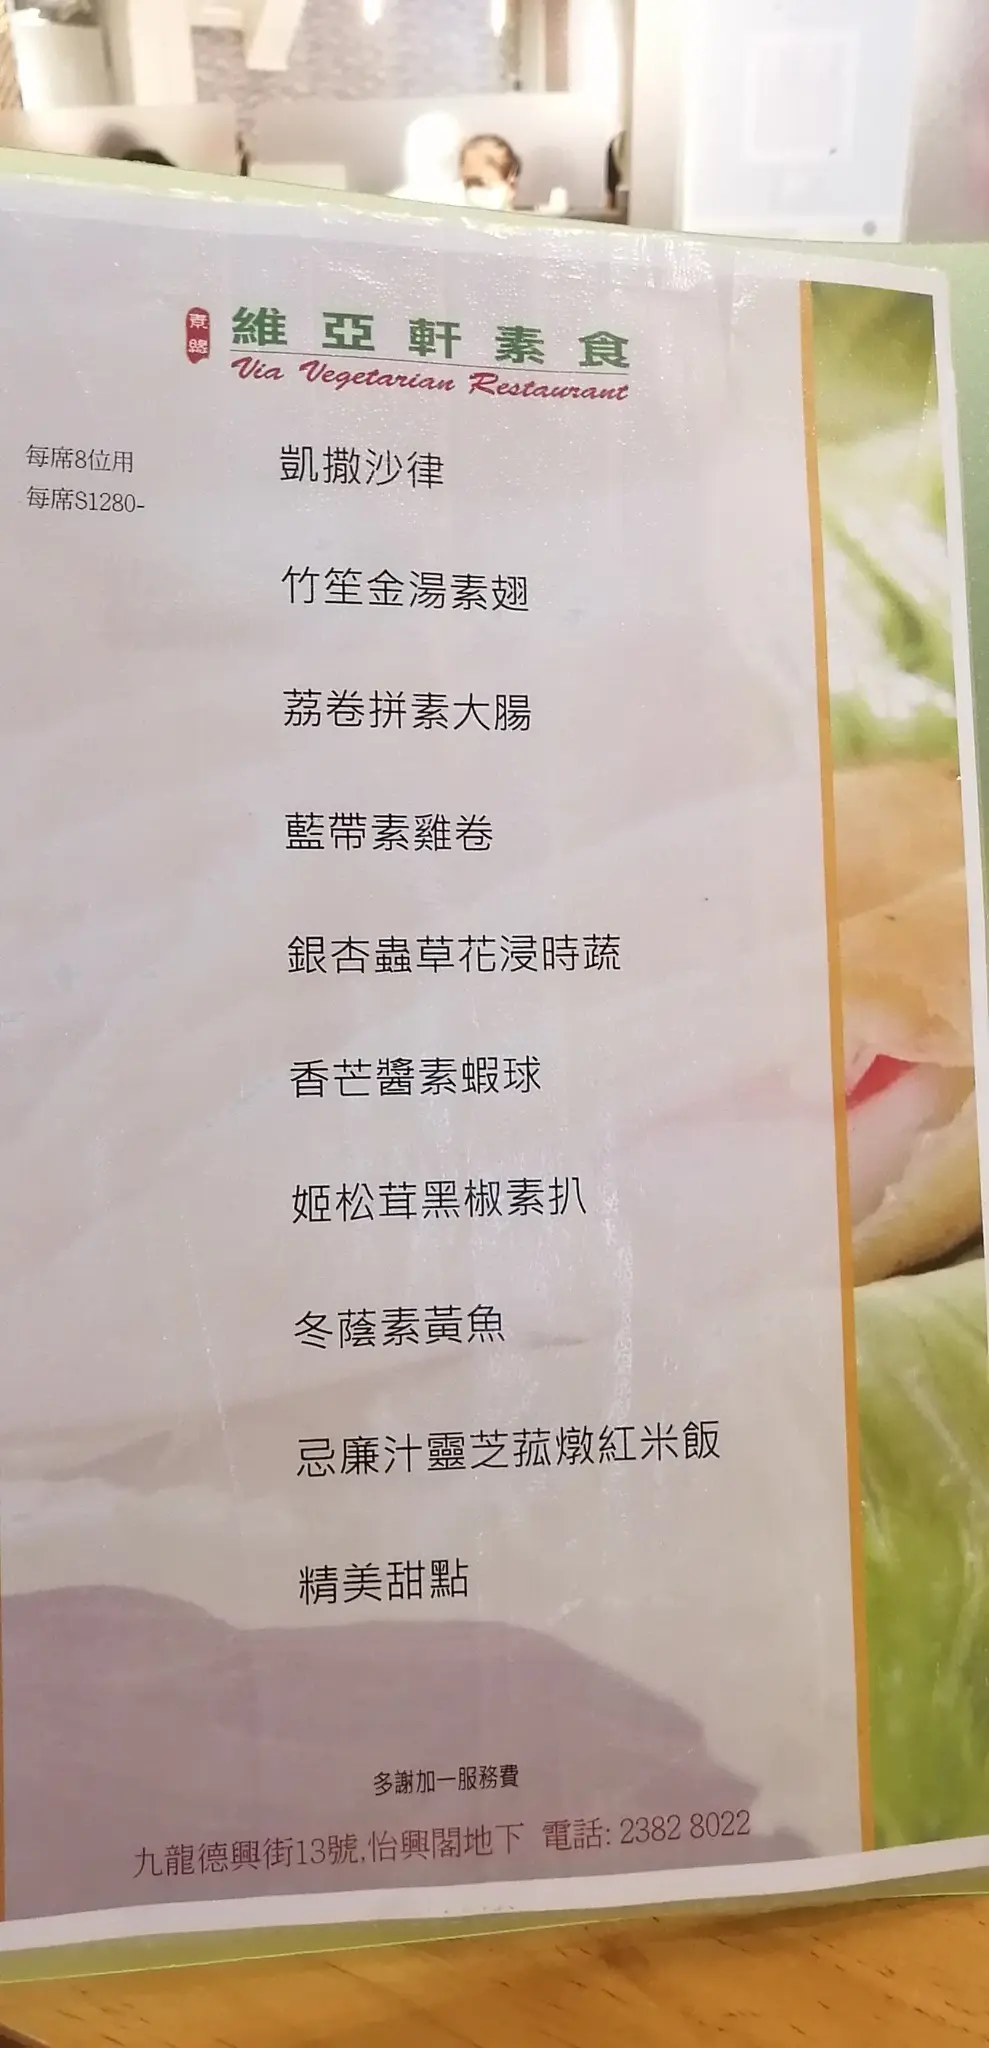 維亞軒素食
Via Vegetarian Restaurant
每席8位用
每席$1280-
凱撒沙律
竹笙金湯素翅
荔卷拼素大腸
藍帶素雞卷
銀杏蟲草花浸時蔬
香芒醬素蝦球
姬松茸黑椒素扒
冬蔭素黃魚
忌廉汁靈芝菰燉紅米飯
精美甜點
多謝加一服務費
九龍德興街13號,怡興閣地下 電話: 2382 8022